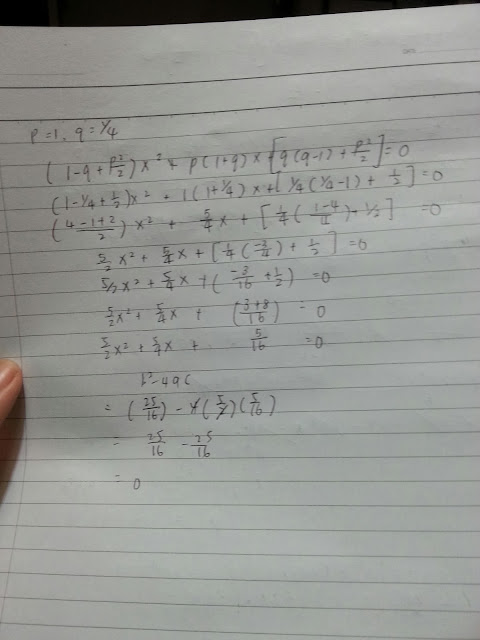 P=1, q=1/4
(1-q+p²/2)x² + p(1+q)x + [q(q-1)+p²/2]=0
(1-1/4+1/2)x² + 1(1+1/4)x + [1/4(1/4-1)+1/2]=0
(4-1+2/2)x² + 5/4x + [1/4(1-4/4)+1/2] =0
5/2x² + 5/4x + [1/4(-3/4)+1/2]=0
5/2x² + 5/4x + (-3/16+1/2) =0
5/2x² + 5/4x + (3+8/16) = 0
5/2x² + 5/4x + 5/16 =0
b²-4ac
= (25/16) - 4(5/2)(5/16)
= 25/16 - 25/16
= 0